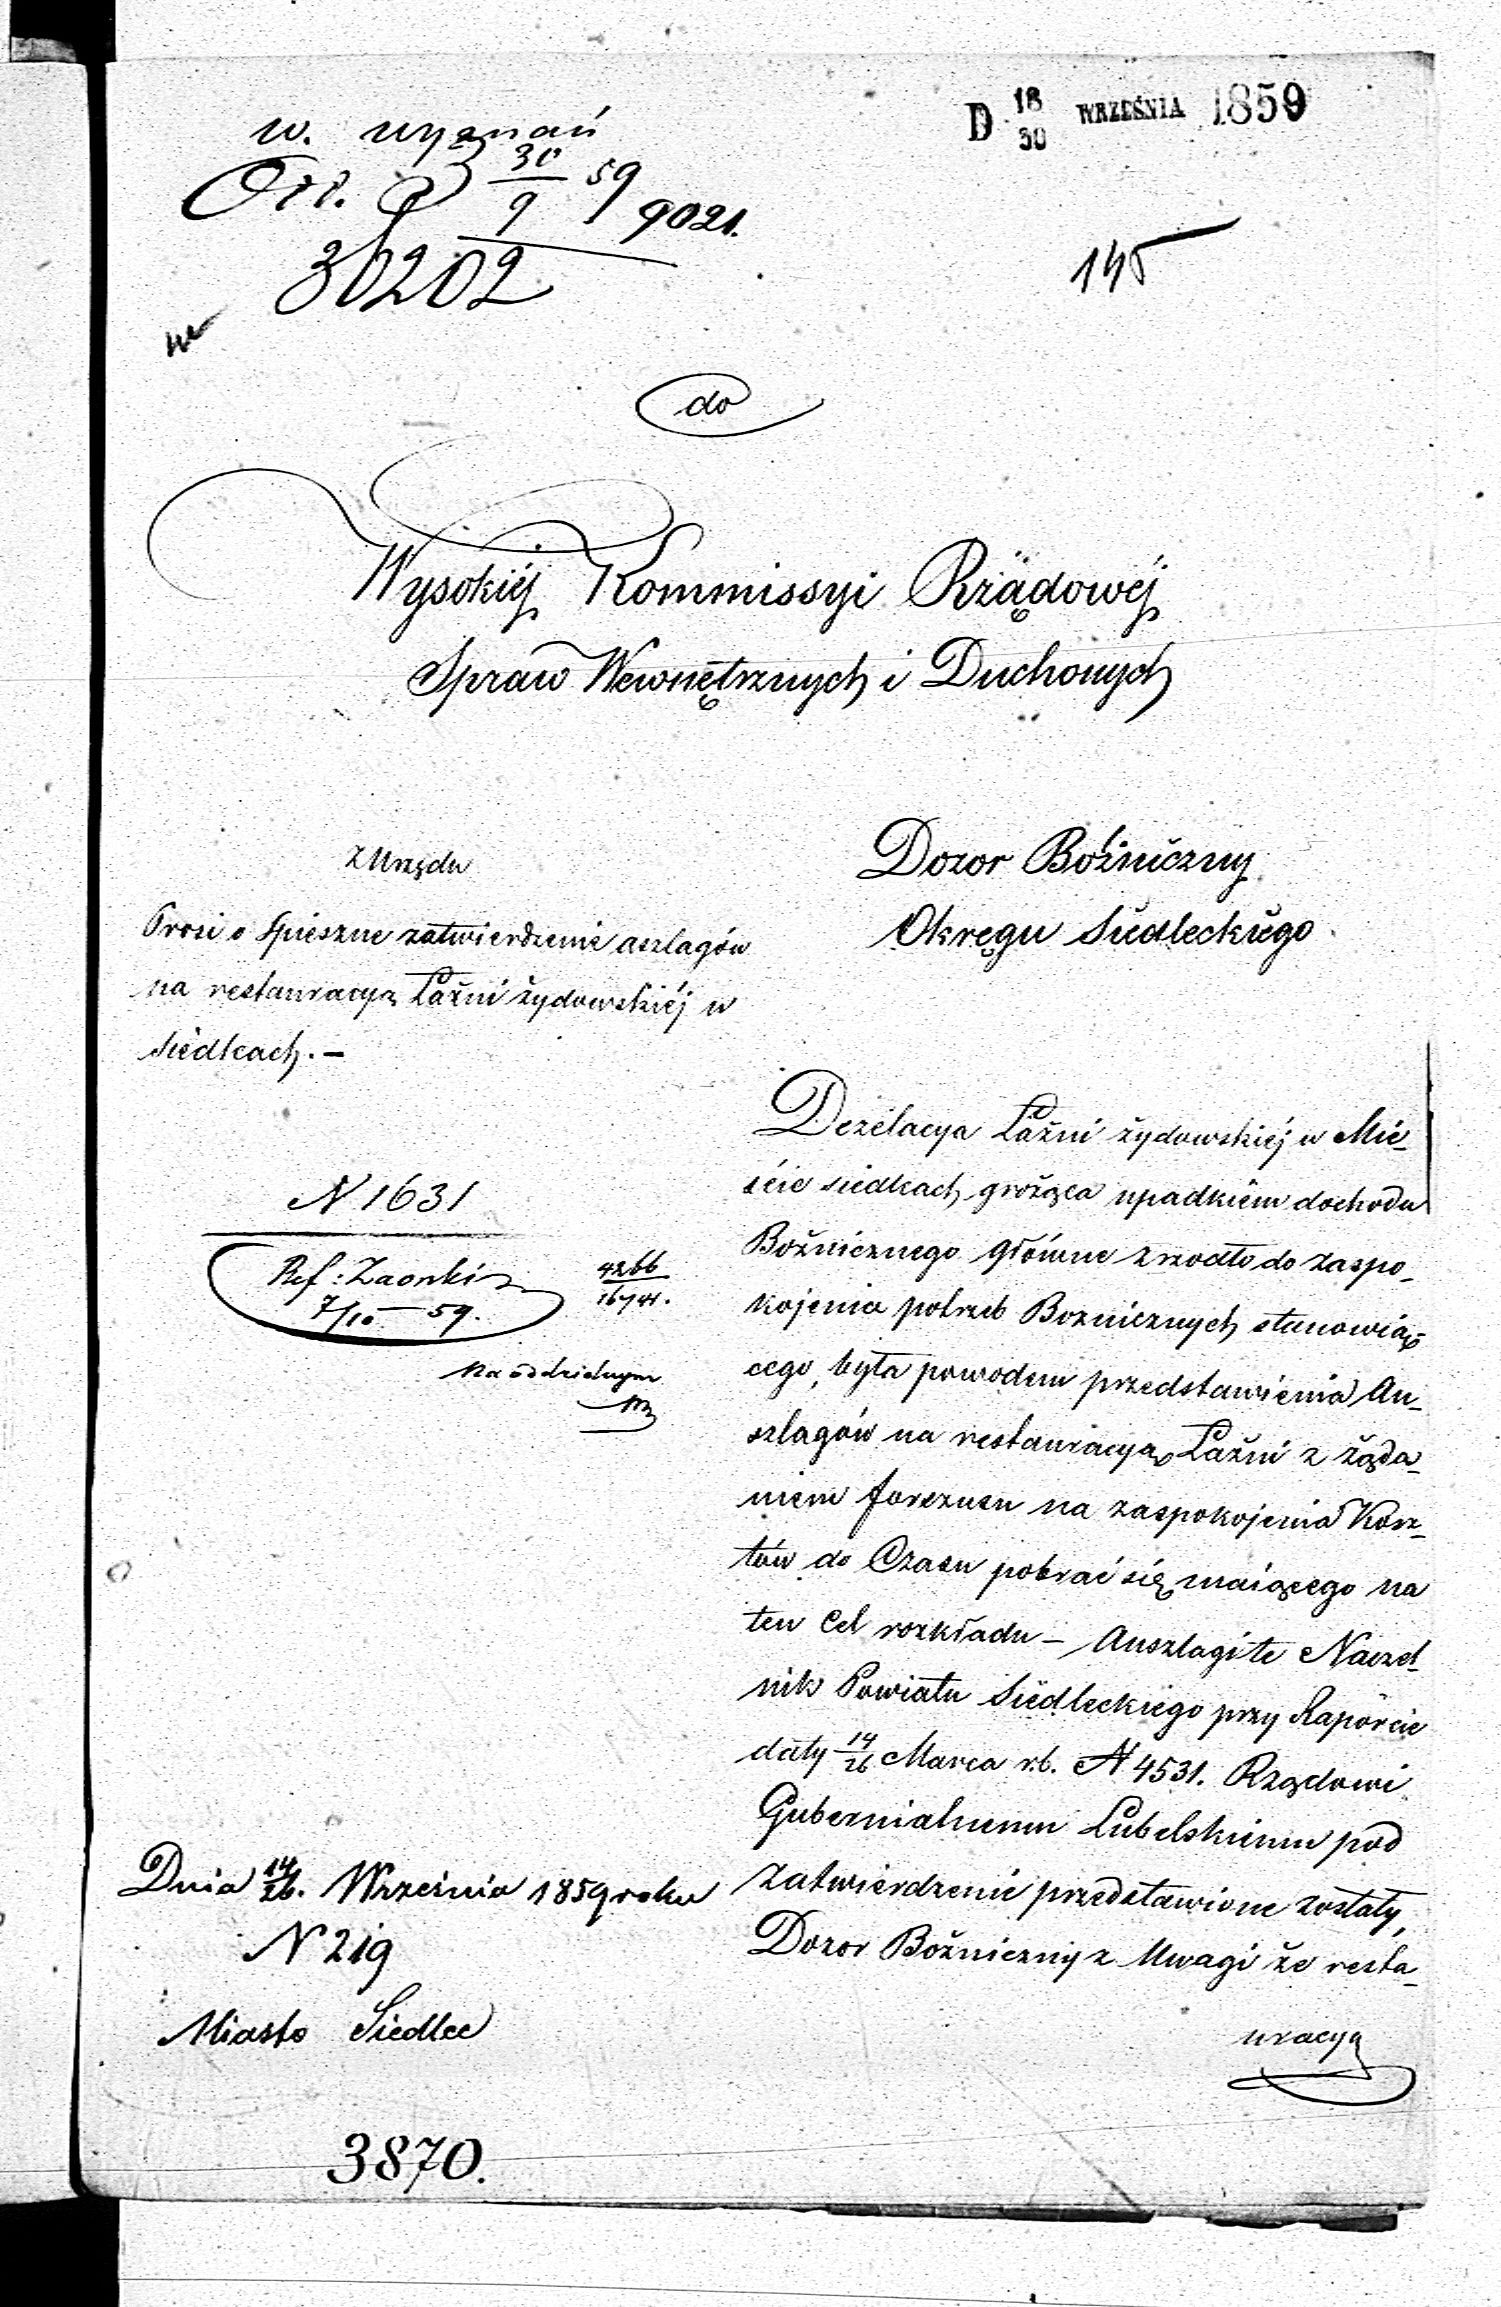 D 18/30 WRZEŚNIA 1859
w. wyznań
30/9 59
9021.
30202
145
do
Wysokiéj Kommissyi Rządowéj
Spraw Wewnętrznych i Duchownych
Dozor Bożniczny
Okręgu Siedleckiego
Z Urzędu
Prosi o spieszne zatwierdzenie aszlagów
na restauracyą Łaźni żydowskiéj w
Siedlcach. –
N 1631
Ref: Zaorski
7/10 – 59.
4266/16741.
Na oddzielnym
Dezelacya Łaźni żydowskiéj w Mie-
ście Siedlcach grożąca upadkiem dochodu
Bożnicznego główne zrzodło do zaspo-
kojenia potrzeb Boznicznych stanowią-
cego, była powodem przedstawienia An-
szlagów na restauracyą Łaźni z żąda-
niem forszusu na zaspokojenia Kosz-
tów do Czasu pobrać się maiącego na
ten Cel rozkładu – Anszlagi te Naczel-
nik Powiatu Siedleckiego przy Raporcie
daty 14/26 Marca r.b. N 4531. Rządowi
Gubernialnemu Lubelskiemu pod
zatwierdzenie przedstawione zostały,
Dozor Bożniczny z Uwagi że resta-
uracya
Dnia 14/26. Września 1859 roku
N 219
Miasto Siedlce
3870.